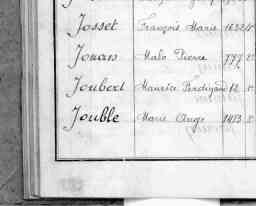 Josset François Marie 1632
Jouais Malo Pierre 777
Joubert Maurice Ferdinand 12
Jouble Marie Ange 1413